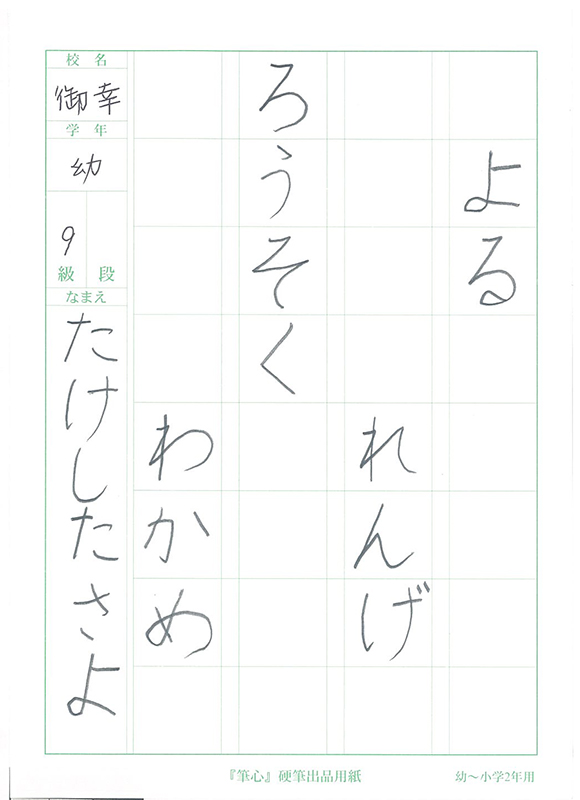 よる
れんげ
ろうそく
わかめ
校名
御幸
学年
幼
9
級段
なまえ
たけしたさよ
『筆心』硬筆出品用紙
幼〜小学2年用